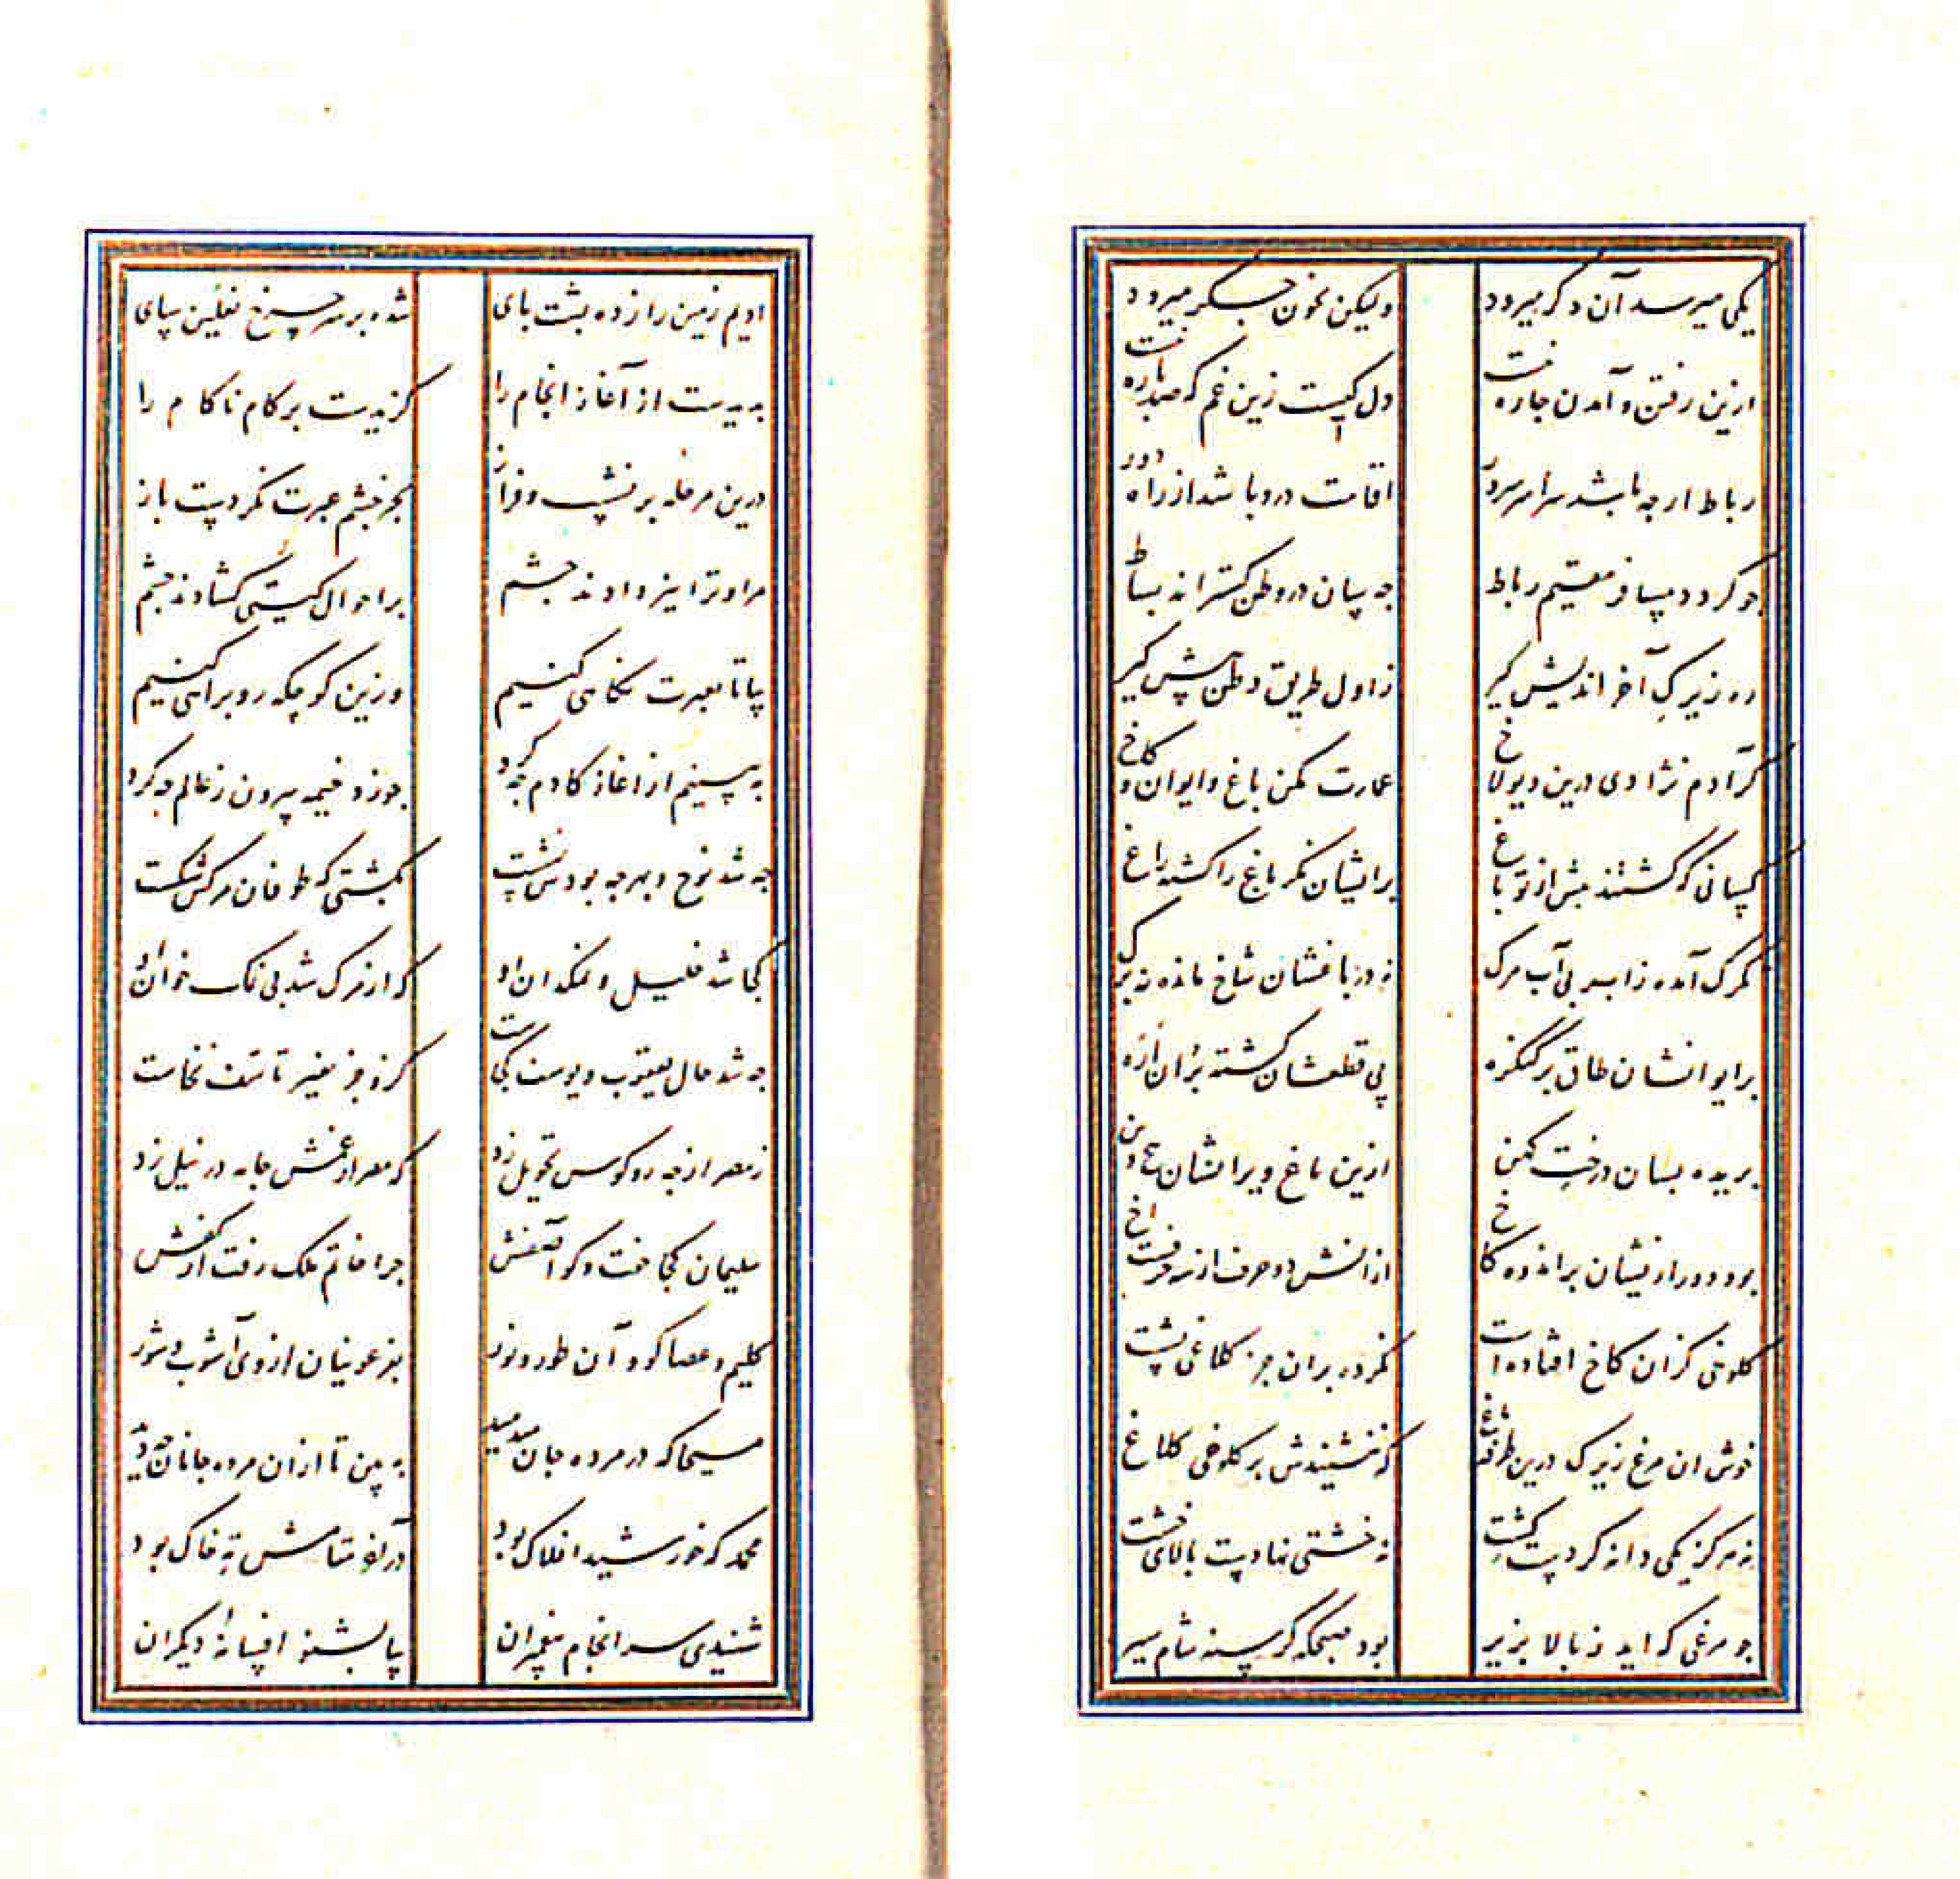 یکی میرسد آن دگر میرود ولیکن بخون جگر میرود
ازین رفتن و آمدن چاره نیست دل کیست زین غم که صد پاره نیست
رباط ار چه باشد سراسر سرور اقامت درو باشد از راه دور
چو گردد مسافر مقیم رباط چه سان در وطن گستراند بساط
ره زیرک آخر اندیش گیر ز اول طریق وطن پیش گیر
گر آدم نژادی درین دیولاخ عمارت مکن باغ و ایوان و کاخ
کسانی که گشتند پیش از تو باغ بر ایشان نگر باغ را گشته راغ
تگرگ آمده ز ابر بی آب مرگ نه در باغشان شاخ مانده نه برگ
بر ایوانشان طاق پر کنگره پی قطعشان گشته بران اره
بریده بسان درخت کهن ازین باغ ویرانشان بیخ و بن
بود دور ازیشان بر انده کاخ از
کلوخی کزان کاخ افتاده است نکرده بران جز کلاغی نشست
خوش ان مرغ زیرک درین طرفه باغ که ننشیندش بر کلوخی کلاغ
نه هرگز یکی دانه کردست کشت نه خشتی نهادست بالای خشت
چو مرغی که اید ز بالا بزیر بود صبحگه گرسنه شام سیر
ادیم زمین را زده پشت پای شده بر سر چرخ نعلین سای
بدیدست از آغاز انجام را گزیدست بر کام ناکام را
درین مرحله پر نشیب و فراز بجز چشم عبرت نکردست باز
مرا و ترا نیز دادند چشم بر احوال گیتی گشادند چشم
بیا تا بعبرت نگاهی کنیم وزین کوچگه رو براهی کنیم
به بینیم از اغاز کادم چه کرد چو زد خیمه بیرون ز عالم چه کرد
چه شد نوح و بهر چه بودش نشست بکشتی که طوفان مرگش شکست
کجا شد خلیل و نمکدان او که از مرگ شد بی نمک خوان او
چه شد حال یعقوب و یوسف کجاست کزو جز نفیر تاسف نخاست
ز مصر از چه رو کوس تحویل زد که مصر از غمش جامه در نیل زد
سلیمان کجا رفت و کو آصفش چرا خاتم ملک رفت از کفش
کلیم و عصا کو و آن طور و نور بفرعونیان از وی آشوب و شور
مسیحا که در مرده جان میدمید به بین تا ازان مرده جانان چه دید
محمد که خورشید افلاک بود در آخر مقامش ته خاک بود
شنیدی سر انجام پیغمبران بیا بشنو افسانه دیگران